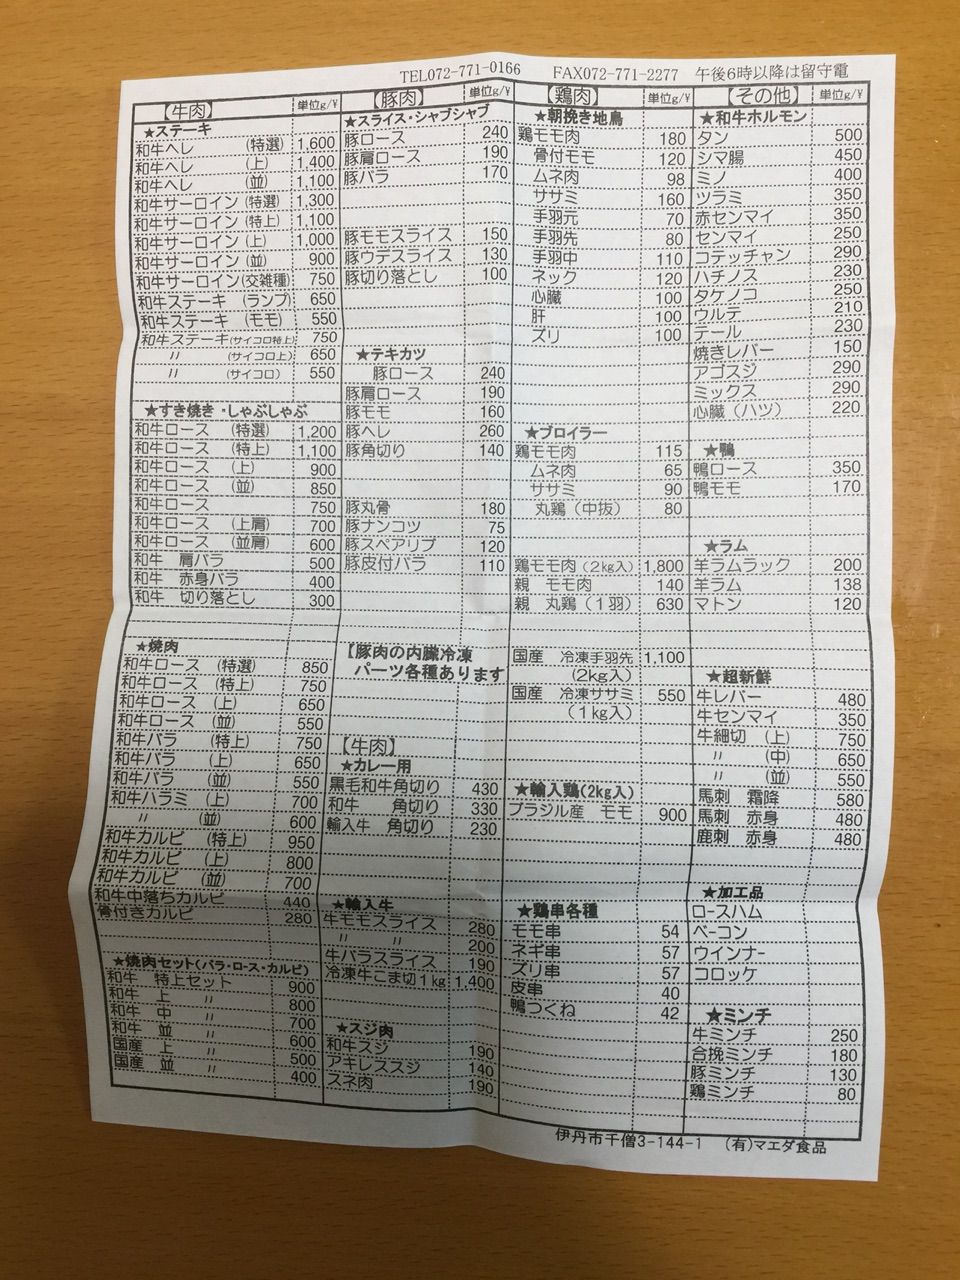 TEL072-771-0166 FAX072-771-2277 午後6時以降は留守電
【牛肉】 単位g/¥
★ステーキ
和牛ヘレ (特選) 1,600
和牛ヘレ (上) 1,400
和牛ヘレ (並) 1,100
和牛サーロイン (特選) 1,300
和牛サーロイン (特上) 1,100
和牛サーロイン (上) 1,000
和牛サーロイン (並) 900
和牛サーロイン(交雑種) 750
和牛ステーキ (ランプ) 650
和牛ステーキ (モモ) 550
和牛ステーキ(サイコロ特上) 750
〃 (サイコロ上) 650
〃 (サイコロ) 550
★すき焼き・しゃぶしゃぶ
和牛ロース (特選) 1,200
和牛ロース (特上) 1,100
和牛ロース (上) 900
和牛ロース (並) 850
和牛ロース 750
和牛ロース (上肩) 700
和牛ロース (並肩) 600
和牛 肩バラ 500
和牛 赤身バラ 400
和牛 切り落とし 300
★焼肉
和牛ロース (特選) 850
和牛ロース (特上) 750
和牛ロース (上) 650
和牛ロース (並) 550
和牛バラ (特上) 750
和牛バラ (上) 650
和牛バラ (並) 550
和牛ハラミ (上) 700
〃 (並) 600
和牛カルビ (特上) 950
和牛カルビ (上) 800
和牛カルビ (並) 700
和牛中落ちカルビ 440
骨付きカルビ 280
★焼肉セット(バラ・ロース・カルビ)
和牛 特上セット 900
和牛 上 〃 800
和牛 中 〃 700
和牛 並 〃 600
国産 上 〃 500
国産 並 〃 400
【豚肉】 単位g/¥
★スライス・シャブシャブ
豚ロース 240
豚肩ロース 190
豚バラ 170
豚モモスライス 150
豚ウデスライス 130
豚切り落とし 100
★テキカツ
豚ロース 240
豚肩ロース 190
豚モモ 160
豚ヘレ 260
豚角切り 140
豚丸骨 180
豚ナンコツ 75
豚スペアリブ 120
豚皮付バラ 110
【豚肉の内臓冷凍
パーツ各種あります
【牛肉】
★カレー用
黒毛和牛角切り 430
和牛 角切り 330
輸入牛 角切り 230
★輸入牛
牛モモスライス 280
〃 〃 200
牛バラスライス 190
冷凍牛こま切1kg 1,400
★スジ肉
和牛スジ 190
アキレススジ 140
スネ肉 190
【鶏肉】 単位g/¥
★朝挽き地鳥
鶏モモ肉 180
骨付モモ 120
ムネ肉 98
ササミ 160
手羽元 70
手羽先 80
手羽中 110
ネック 120
心臓 100
肝 100
ズリ 100
★ブロイラー
鶏モモ肉 115
ムネ肉 65
ササミ 90
丸鶏(中抜) 80
鶏モモ肉(2kg入) 1,800
親 モモ肉 140
親 丸鶏(1羽) 630
国産 冷凍手羽先 1,100
(2kg入)
国産 冷凍ササミ 550
(1kg入)
★輸入鶏(2kg入)
ブラジル産 モモ 900
★鶏串各種
モモ串 54
ネギ串 57
ズリ串 57
皮串 40
鴨つくね 42
【その他】 単位g/¥
★和牛ホルモン
タン 500
シマ腸 450
ミノ 400
ツラミ 350
赤センマイ 350
センマイ 250
コテッチャン 290
ハチノス 230
タケノコ 250
ウルテ 210
テール 230
焼きレバー 150
アゴスジ 290
ミックス 290
心臓(ハツ) 220
★鴨
鴨ロース 350
鴨モモ 170
★ラム
羊ラムラック 200
羊ラム 138
マトン 120
★超新鮮
牛レバー 480
牛センマイ 350
牛細切 (上) 750
〃 (中) 650
〃 (並) 550
馬刺 霜降 580
馬刺 赤身 480
鹿刺 赤身 480
★加工品
ロースハム
ベーコン
ウインナー
コロッケ
★ミンチ
牛ミンチ 250
合挽ミンチ 180
豚ミンチ 130
鶏ミンチ 80
伊丹市千僧3-144-1 (有)マエダ食品